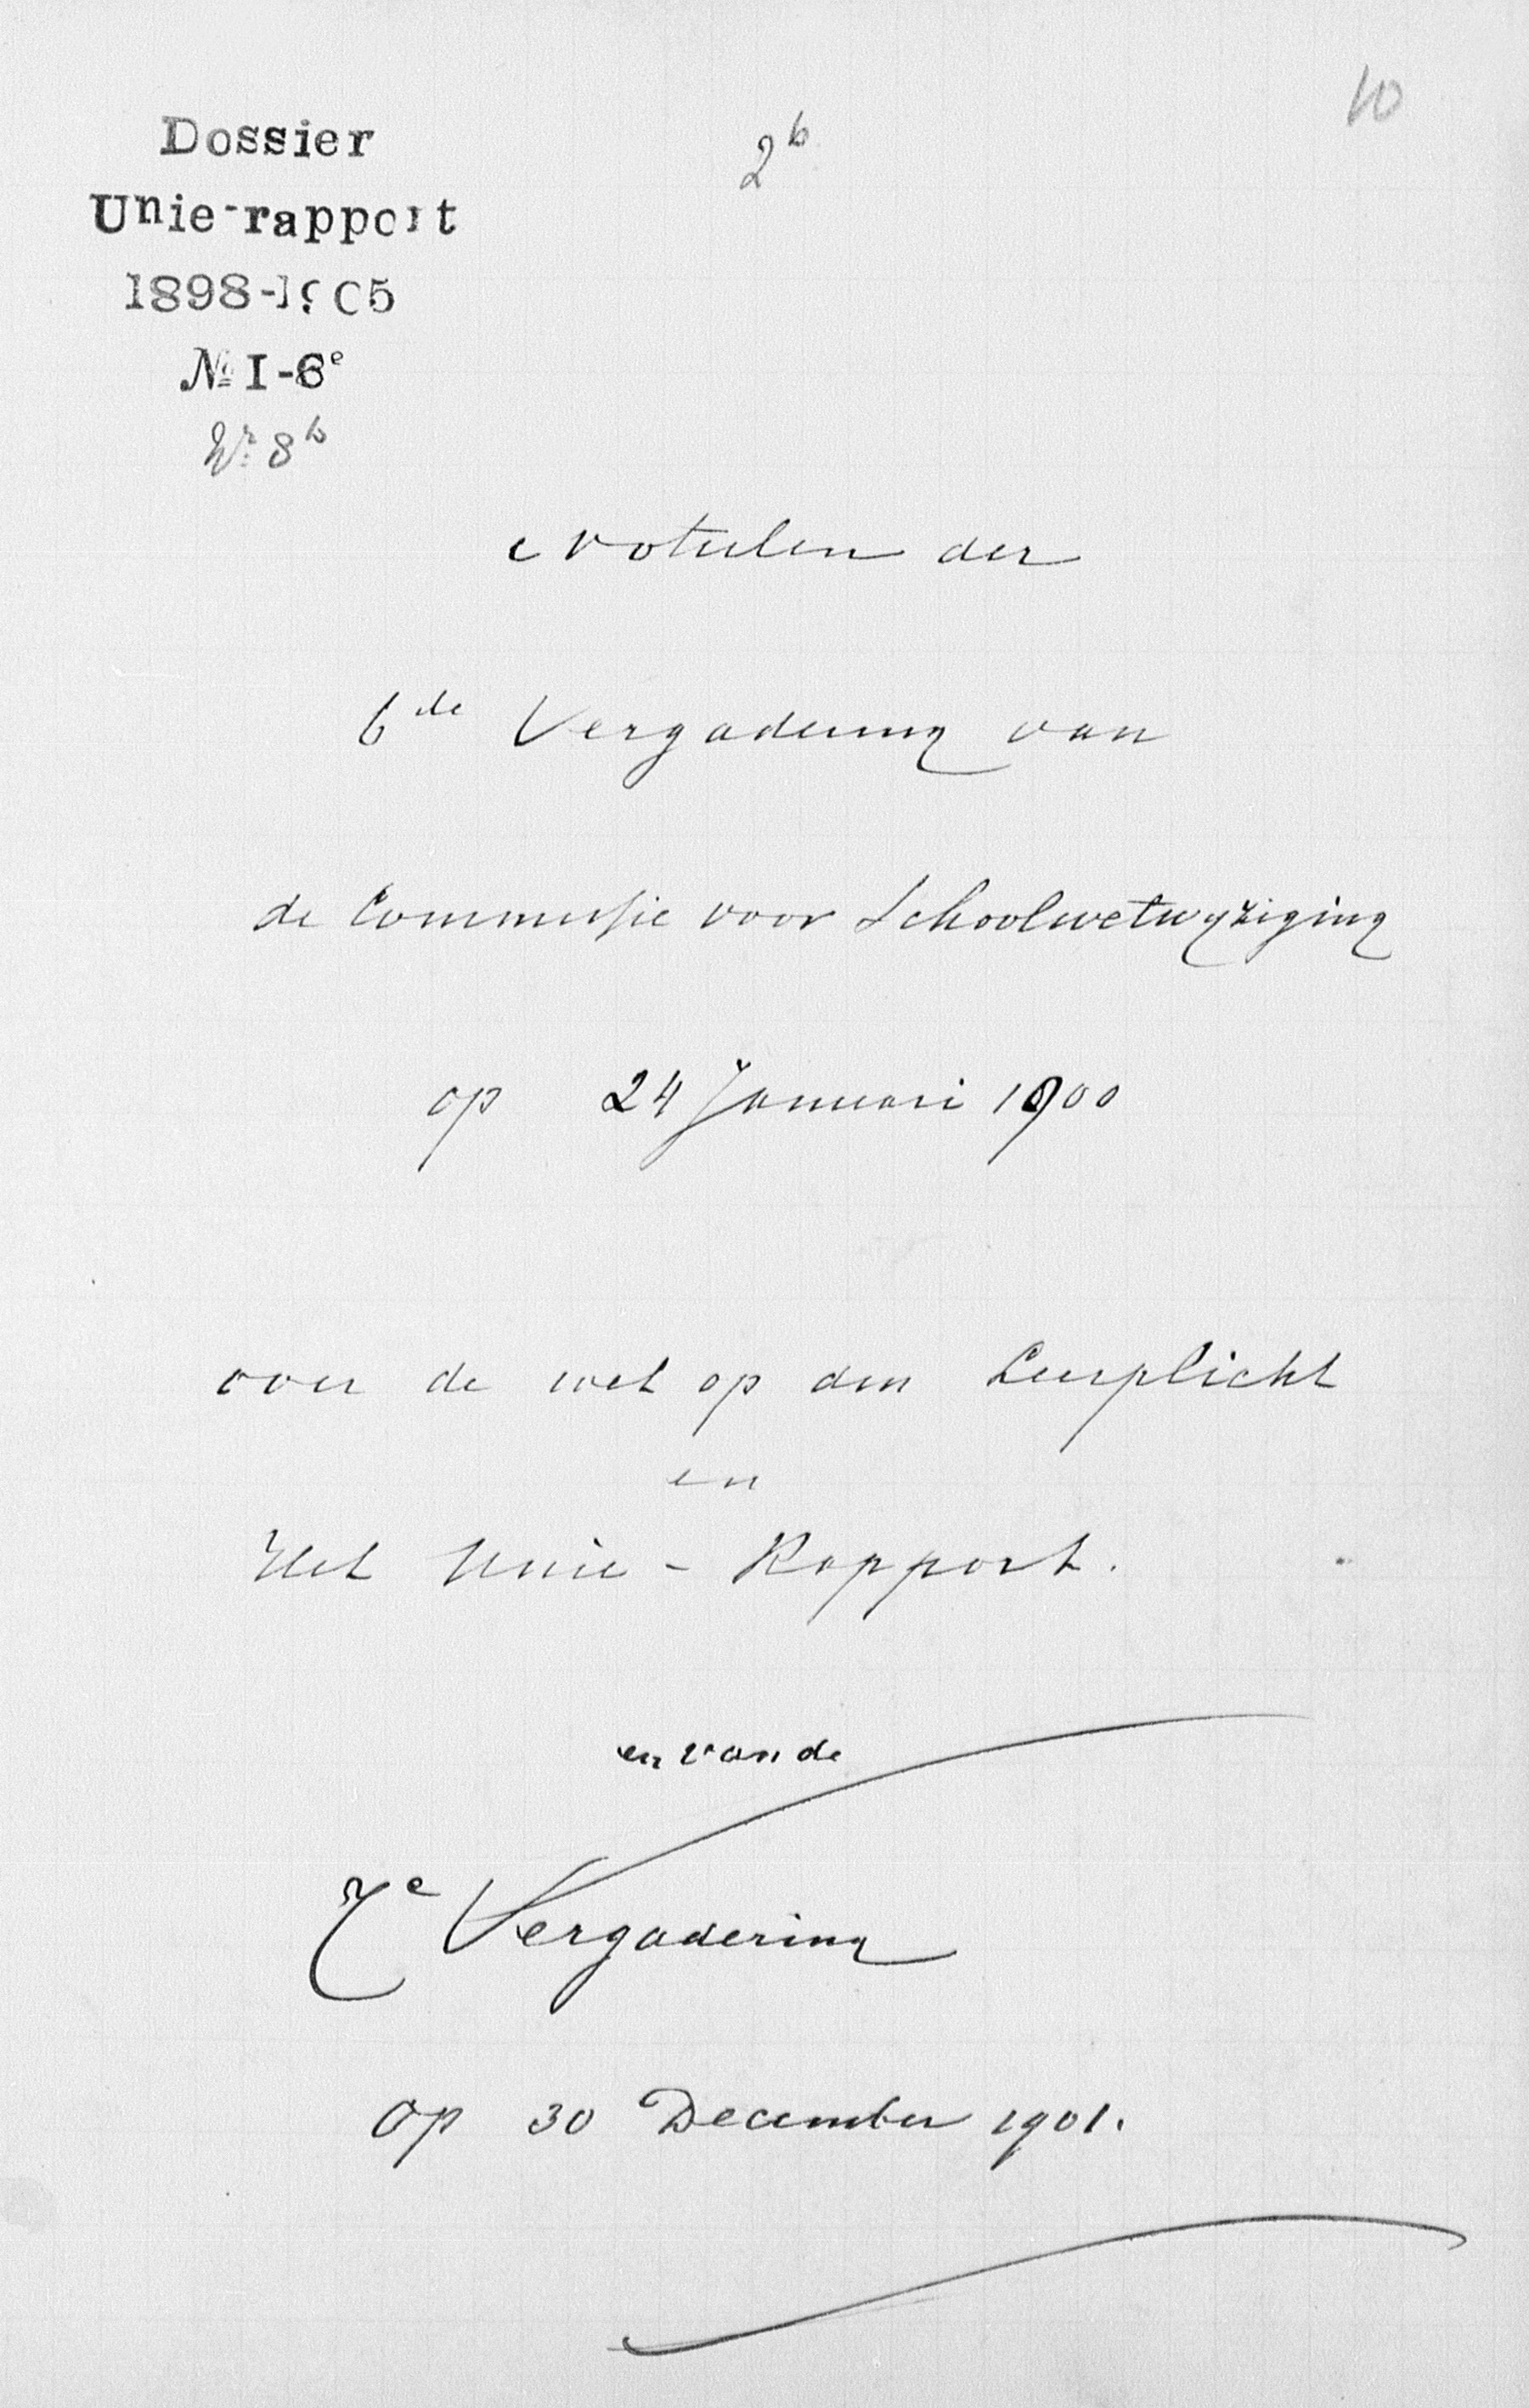 10
2b
Dossier
Unie-rapport
1898-1905
№ I-6e
Nr. 8b
Notulen der
6de Vergadering van
de Commissie voor Schoolwetwyziging
op 24 Januari 1900
over de wet op den Leerplicht
en
Het Unie-Rapport.
en van de
7e Vergadering
op 30 December 1901.